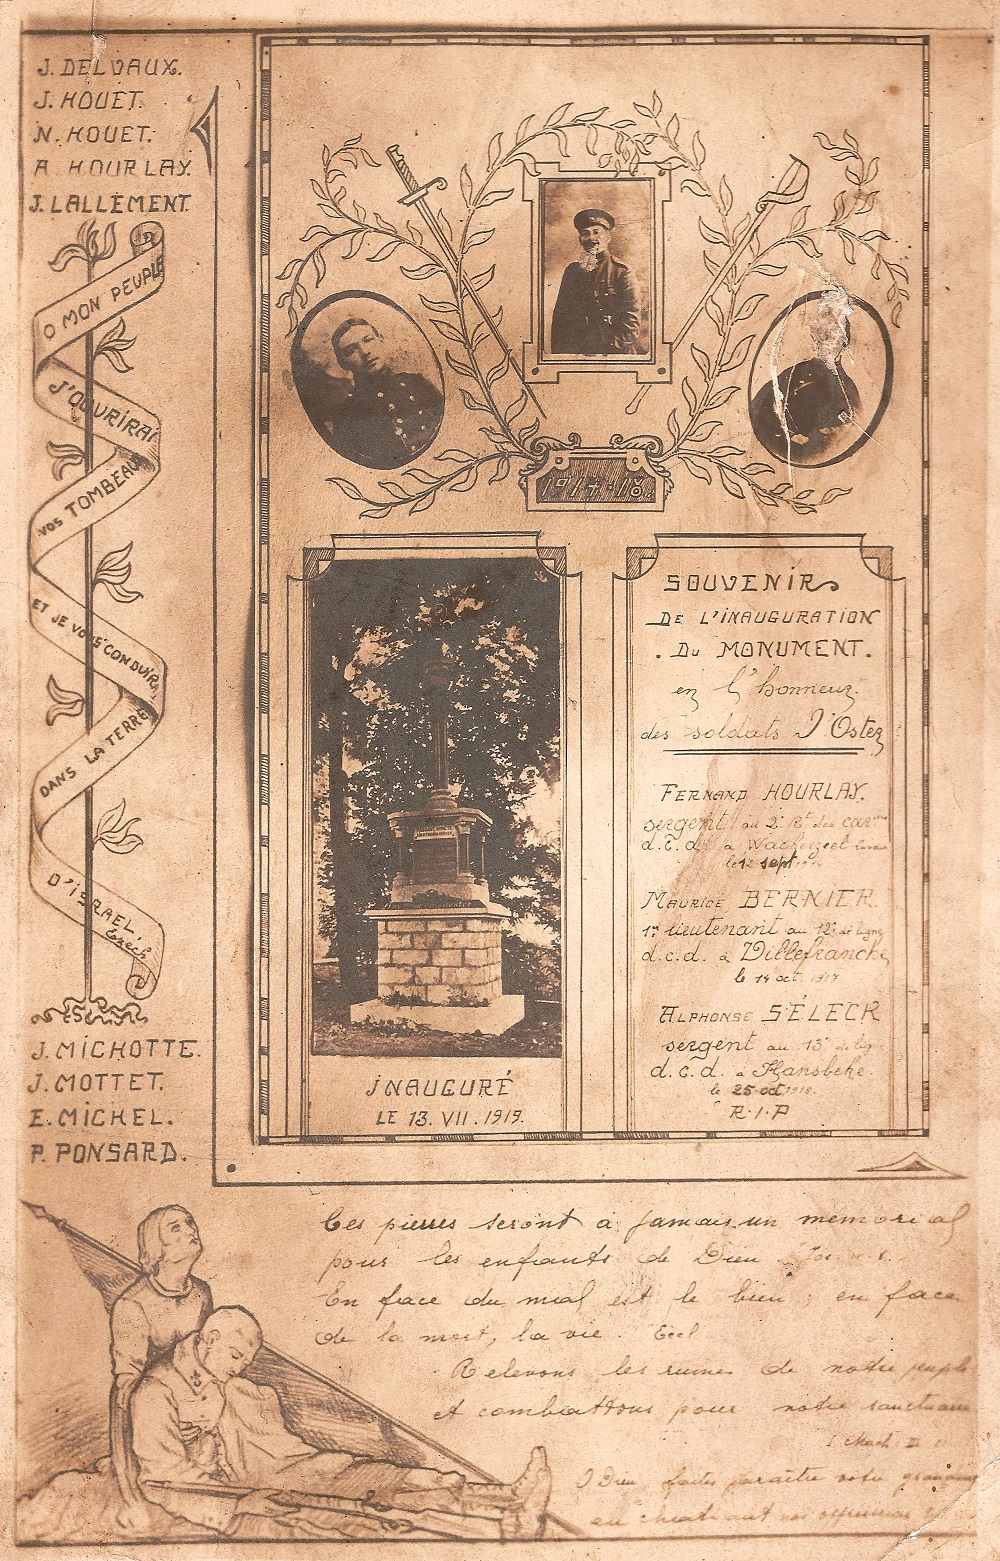 J. DELVAUX.
J. HOUET.
N. HOUET.
A. HOURLAY.
J. LALLEMENT.
O MON PEUPLE
J'OUVRIRAI
VOS TOMBEAUX
ET JE VOUS CONDUIRAI
DANS LA TERRE
D'ISRAEL.
Ezech
J. MICHOTTE.
J. MOTTET.
E. MICHEL.
P. PONSARD.
1914-18.
INAUGURÉ
LE 13. VII. 1919.
SOUVENIR
DE L'INAUGURATION
. DU MONUMENT.
en l'honneur
des soldats d'Oster
FERNAND HOURLAY.
sergent au 2e Rt des car
d.c.d. à
le 12 sept
MAURICE BERNIER.
1r lieutenant au 12e de ligne
d.c.d. à Villefranche
le 14 oct. 1917
ALPHONSE SÉLECK
sergent au 13e de lig
d.c.d. à Hansbeke.
le 25 oct 1918.
R.I.P
Ces pierres seront à jamais un mémorial
pour les enfants de Dieu Jos
En face du mal est le bien ; en face
de la mort, la vie. Eccl.
Relevons les ruines de notre peuple
et combattons pour notre sanctuaire
Mach
Dieu, faites paraître votre grandeur
en châtiant nos